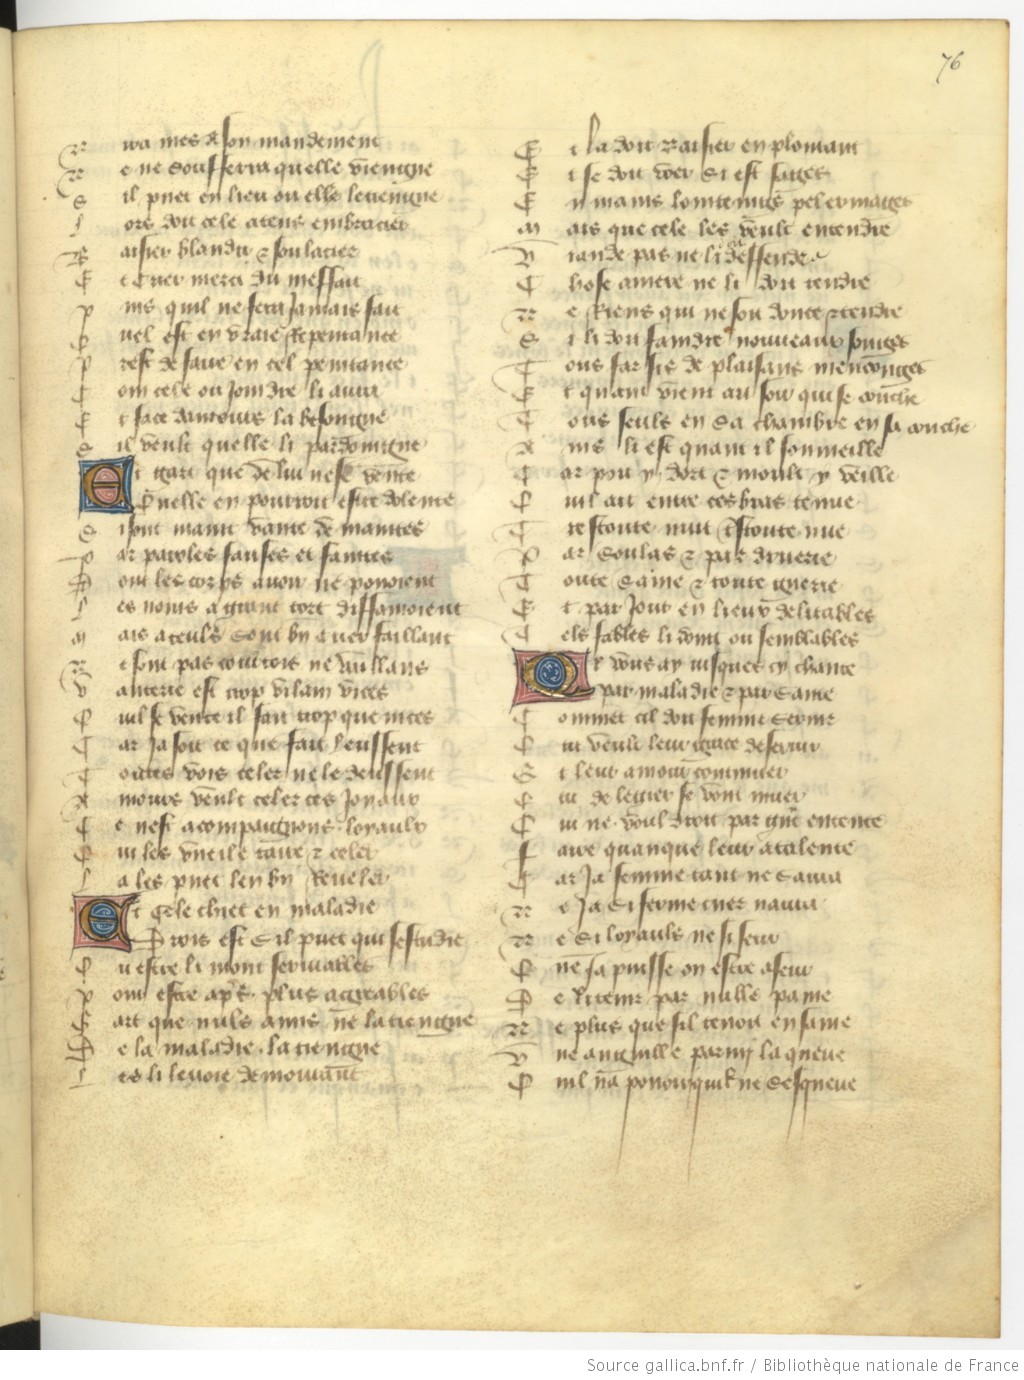 76
N ira mes a son mandement
N e ne souffrira quelle viengne
S il puet en lieu ou elle le tiengne
L ors doit cele a tens embracier
B aisier blandir & soulacier
E t crier merci du meffait
P uis quil ne sera jamais fait
Q uel est en vraie repentance
P rest de faire en cel penitance
C om cele ou joindre li aura
E t face damours la besoingne
S il veult quelle li pardoingne
Et gart que de lui ne se vente
Quelle en pourroit estre dolente
S i sont maint vante de maintes
P ar paroles fauses et faintes
D ont les corps avoir ne povoient
L es noms a grant tort diffamoient
M ais a ceuls sont bien cuer faillant
N e sont pas courtois ne vaillans
V anterie est trop vilain vices
Q ui se vente il fait trop que nices
C ar ja soit ce que fait leussent
T outes vois celer ne le deussent
A mours veult celer ces joyaux
C e nest a compaignons loyaulx
Q ui les vueile taire & celer
L a les puet len bien reveler
Et selle chiet en maladie
Drois est sil puet qui sestudie
E n estre li mont servables
P our estre apres plus agreables
G art que nuls anuis ne la tiengne
D e la maladie latiengne
L es li le voie demourant
E t la doit baisier en plourant
E t se doit voer si est sages
E n mains lointeings pelerinages
M ais que cele les veult entendre
V iande pas ne li deffende
C hose amere ne li doit tendre
N e riens qui ne soit douce & tendre
S i li doit faindre nouveaux songes
T ous farsis de plaisans menconges
E t quant vient au soir qui se couche
T ous seuls en sa chambre en sa couche
A vis li est quant il sommeille
C ar pou y dort & moult y veille
Q uil ait entre ces bras tenue
T restoute nuit trestoute nue
P ar soulas & par druerie
T oute saine & toute guerie
E t par jour en lieux delitables
T els fables li dont ou semblables
Or vous ay jusques cy chante
Par maladie & par sante
C omment cil doit femme servir
Q ui veult leur grace deservir
E t leur amour continuer
Q ui de legier se vont muer
Q ui ne vouldroit par grant entente
F aire quanque leur atalente
C ar ja femme tant ne saura
N e ja si ferme cuer naura
N e si loyauls ne si seur
Q ue ja puisse on estre aseur
D e li tenir par nulle paine
N e plus que sil tenoit en saine
V ne anguille parmy la queue
Q uil na povoir quil ne sesqueue